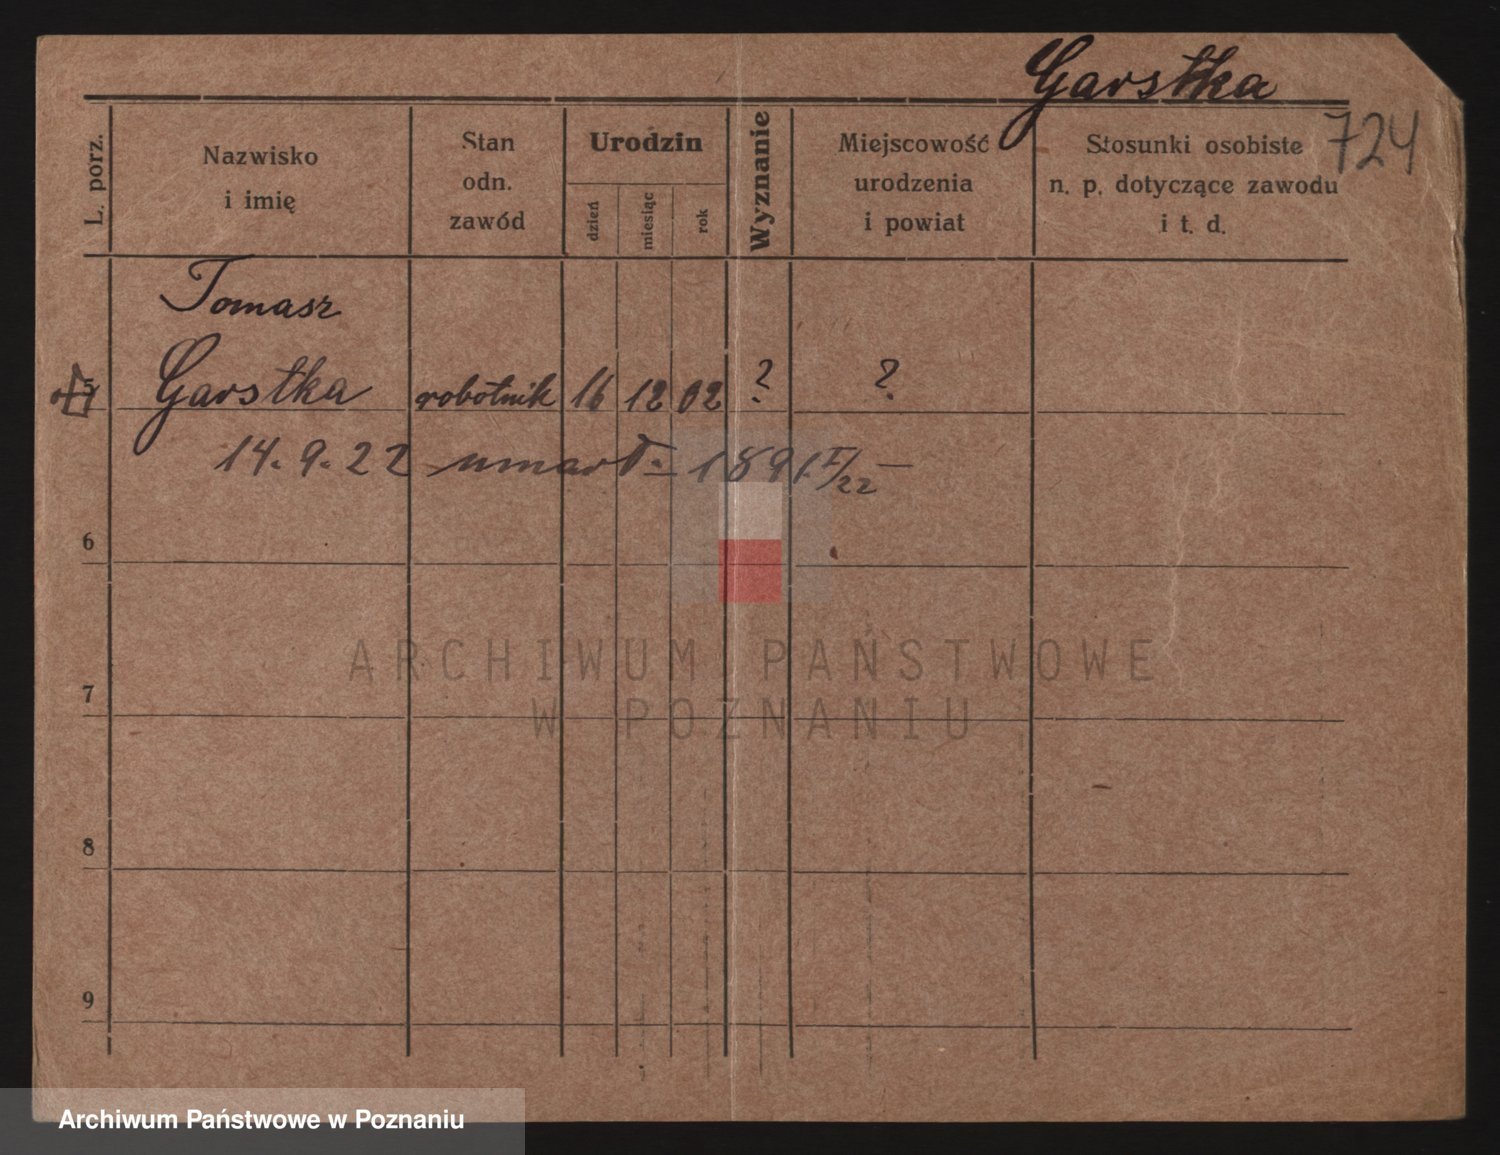 Garstka
724
L. porz.
Nazwisko
i imię
Stan
odn.
zawód
Urodzin
dzień
miesiąc
rok
Wyznanie
Miejscowość
urodzenia
i powiat
Stosunki osobiste
n. p. dotyczące zawodu
i t. d.
Tomasz
5 Garstka robotnik 16 12 02 ? ?
14. 9. 22 umarł. 1891 I/22 —
6
7
8
9
ARCHIWUM PAŃSTWOWE
W POZNANIU
Archiwum Państwowe w Poznaniu